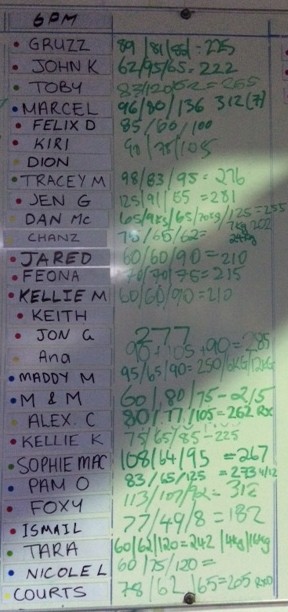 6PM
GRUZZ 89/81/55 = 225
JOHN K 62/95/65 = 222
TOBY 83/120/62 = 265
MARCEL 96/80/136 312 (7)
FELIX D 85/60/100
KIRI 90/75/105
DION
TRACEY M 98/83/95 = 276
JEN G 125/91/65 = 281
DAN MC 65/70kg/125 = 255
CHANZ 75/65/62 = 202
JARED 60/60/90 = 210
FEONA 70/70/75 = 215
KELLIE M 60/60/90 = 210
KEITH
JON G 277
Ana 90/105/90 = 285
MADDY M 95/65/90 = 250/6KG/12KG
M & M 60/80/75 - 215
ALEX. C 80/77/105 = 262 Rx
KELLIE K 75/65/85 - 225
SOPHIE MAC 108/64/95 = 267
PAM O 83/65/125 = 273 4/12
FOXY 113/107/92 = 312
ISMAIL 77/49/8 = 182
TARA 60/62/120 = 242 /14kg/16kg
NICOLE L 60/75/120 =
COURTS 78/62/65 = 205